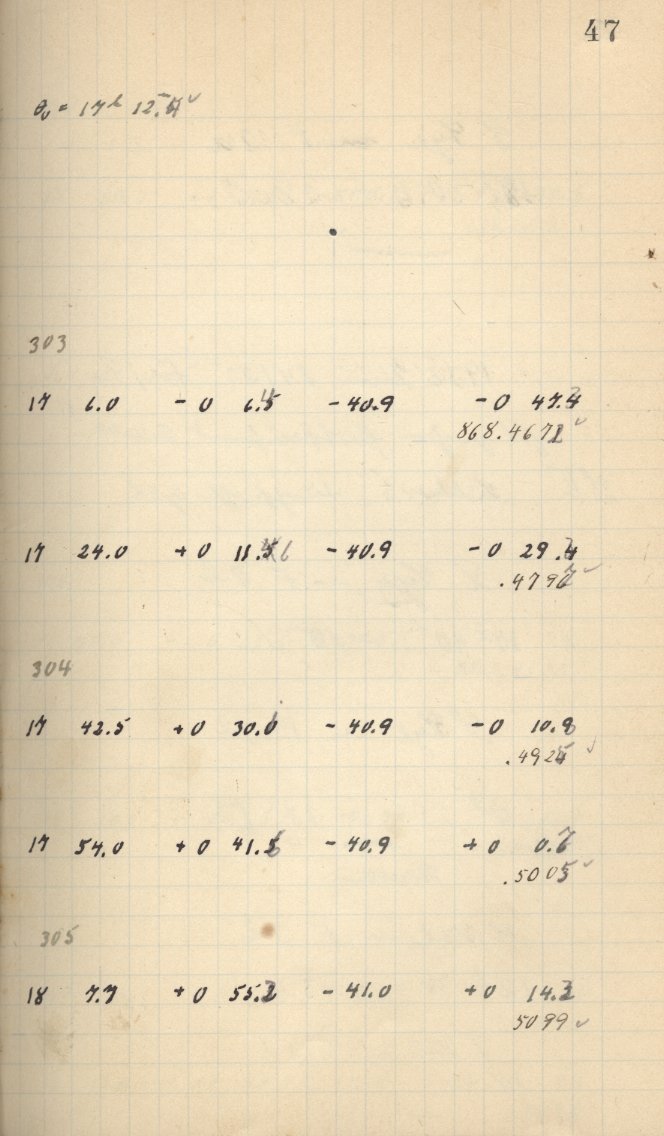 47
θ₀ = 17ʰ 12.ᵐ4 ✓
303
17 6.0 - 0 6.4 - 40.9 - 0 47.3
868.4672 ✓
17 24.0 + 0 11.6 - 40.9 - 0 29.3
.4797 ✓
304
17 42.5 + 0 30.1 - 40.9 - 0 10.8
.4925 ✓
17 54.0 + 0 41.6 - 40.9 + 0 0.7
.5005 ✓
305
18 7.7 + 0 55.3 - 41.0 + 0 14.3
5099 ✓